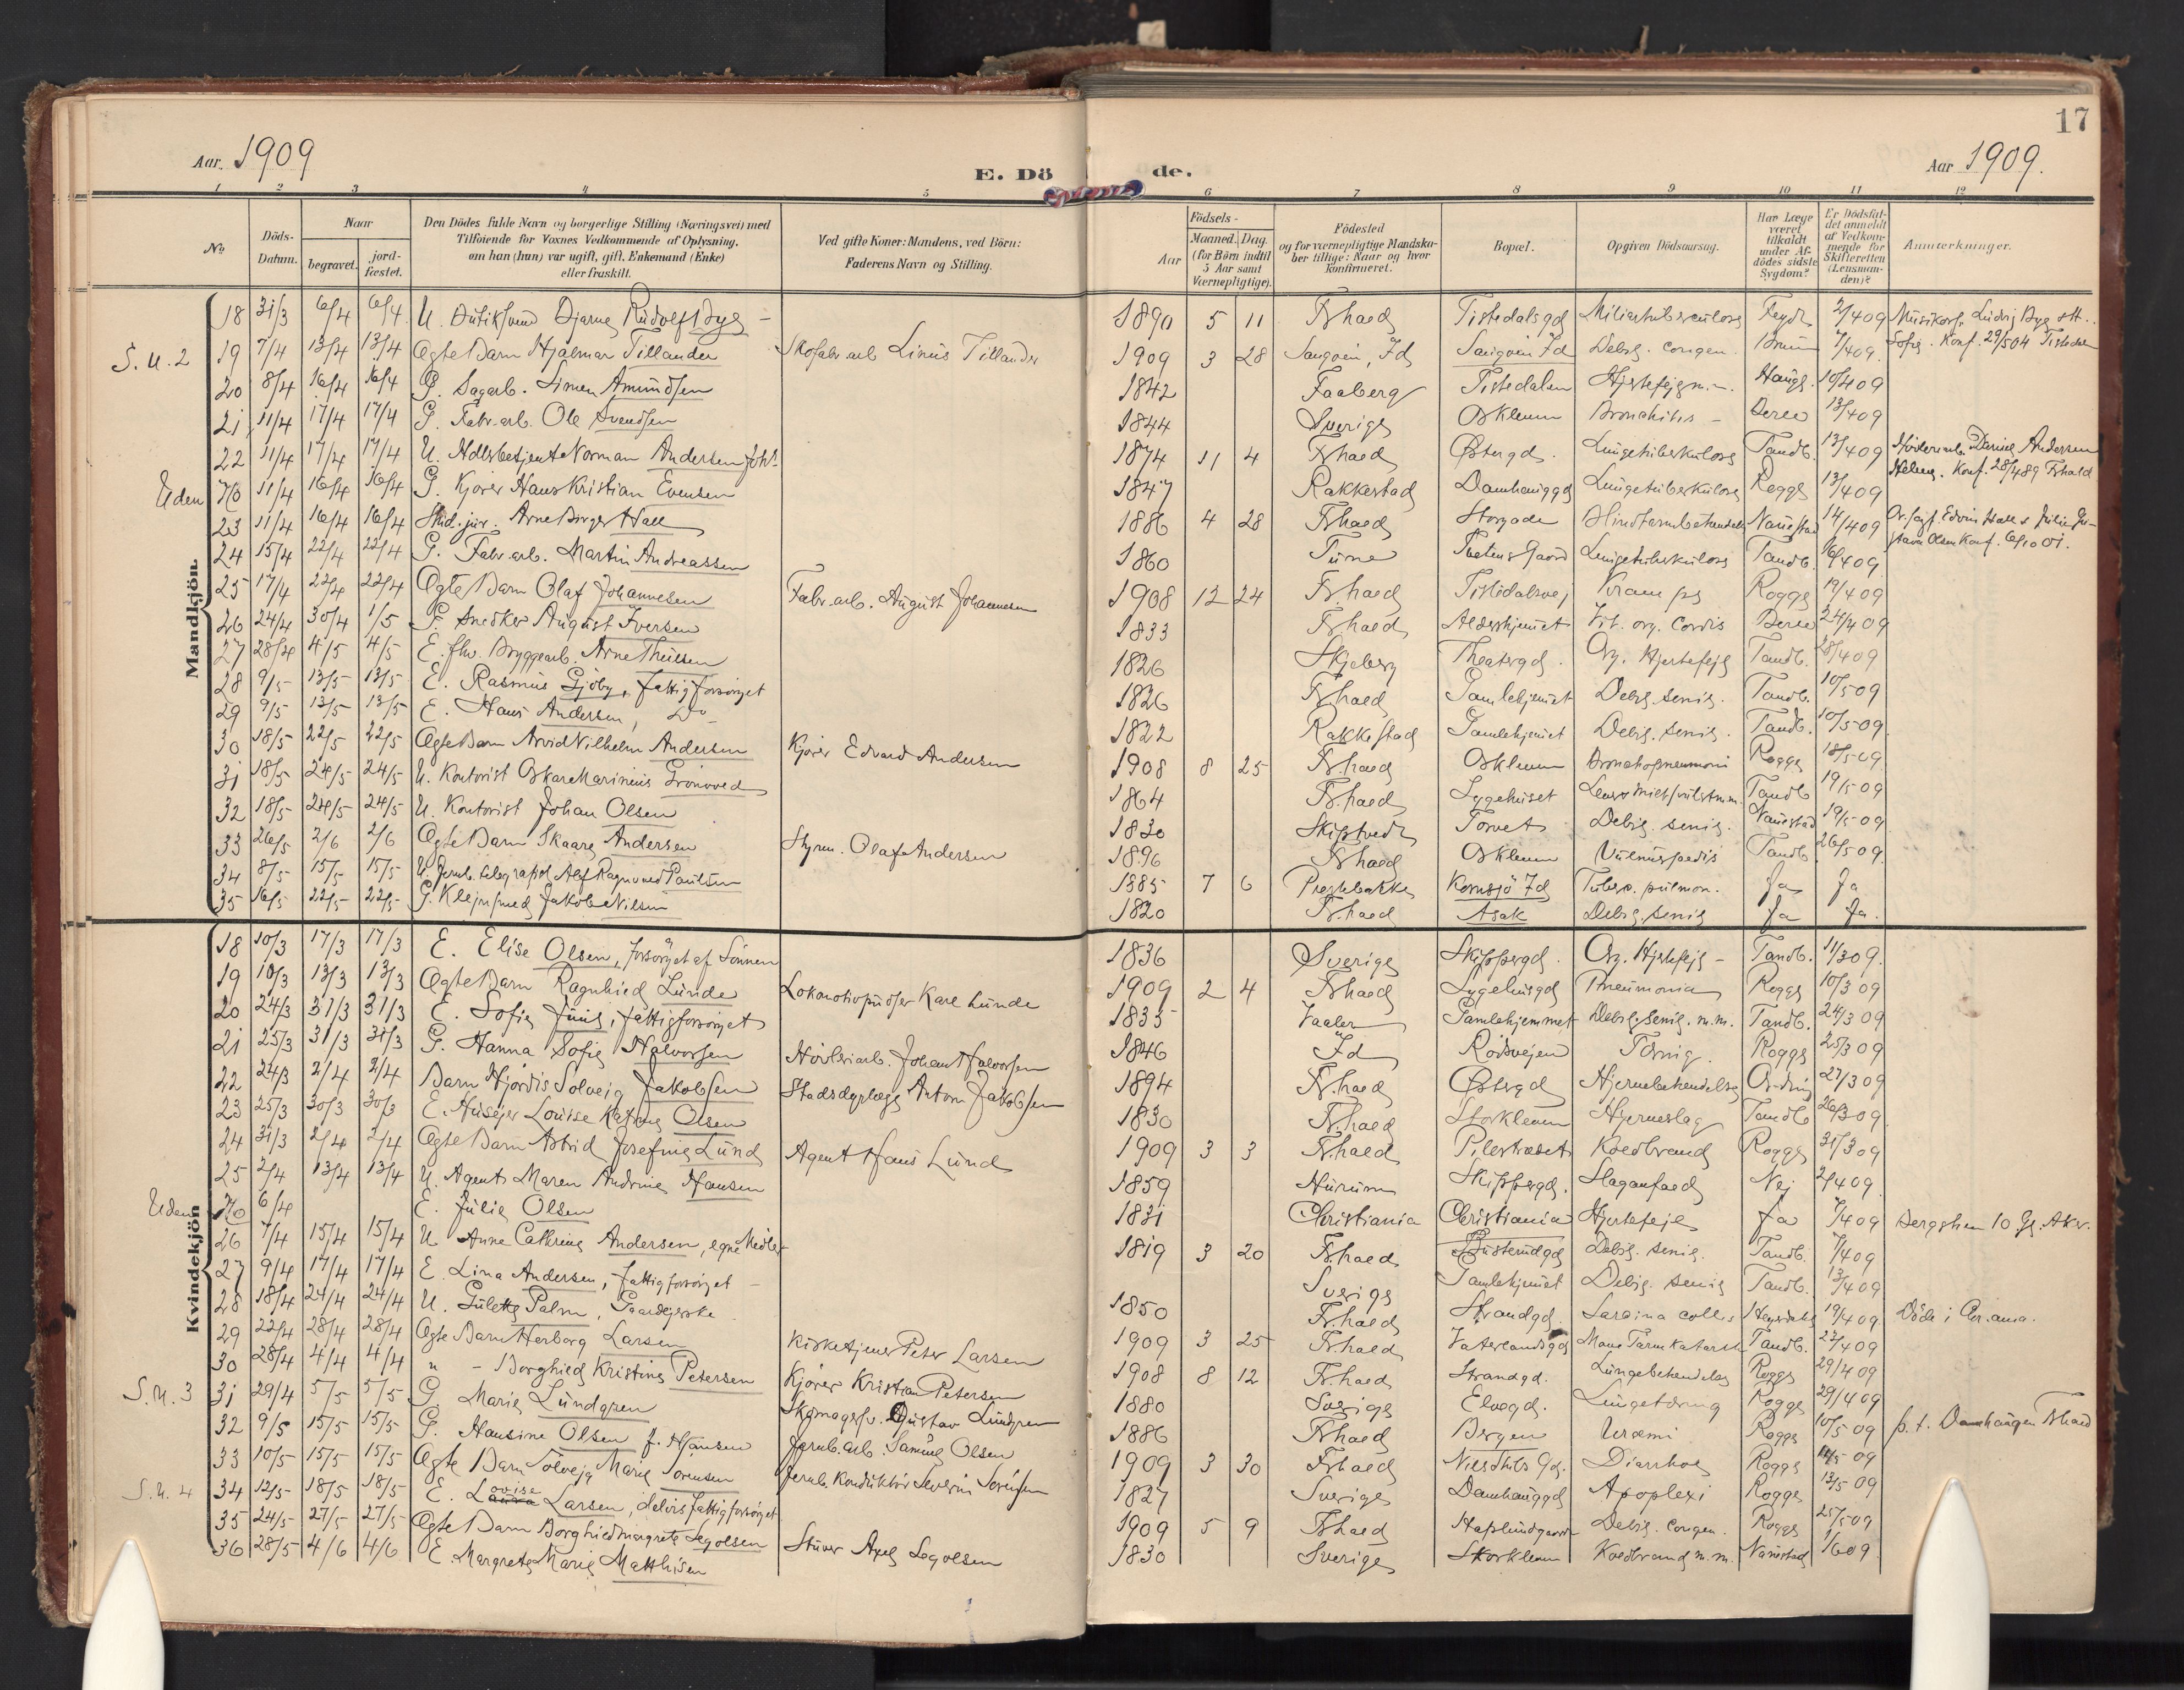 17
Aar. 1909
E. Dö de.
Aar 1909.
1 2 3 4 5 6 7 8 9 10 11 12
No
Döds-Datum.
Naar
begravet.
jord-fæstet.
Den Dödes fulde Navn og borgerlige Stilling (Næringsvei) med
Tilföiende for Voxnes Vedkommende af Oplysning,
om han (hun) var ugift, gift, Enkemand (Enke)
eller fraskilt.
Ved gifte Koner: Mandens, ved Börn:
Faderens Navn og Stilling.
Födsels-
Aar Maaned. Dag.
(for Børn indtil
5 Aar samt
Værnepligtige).
Födested
og for værnepligtige Mandska-
ber tillige: Naar og hvor
konfirmeret.
Bopæl.
Opgiven Dödsaarsag.
Har Læge
været
tilkaldt
under Af-
dödes sidste
Sygdom?
Er Dödsfal-
det anmeldt
af Vedkom-
mende for
Skifteretten
(Lensman-
den)?
Anmærkninger.
Mandkjön.
18 31/3 6/4 6/4 U. Bjarne Rudolf Bye 1890 5 11 Frhald Tistedalsgd Miliærtuberculose 2/4 09 Musikorp. Ludvig Bye
S. U. 2 19 7/4 13/4 13/4 Ægte Barn Hjalmar Tillander Skofabr. arb. Linus Tillander 1909 3 28 Id Id Debil. congen. 7/4 09 Sofie. Konf. 29/5 04 Tistedalen
20 8/4 16/4 16/4 G. Sagarb. Simen Amundsen 1842 Faaberg Tistedalen Hjertefejl m.m. Haugs. 10/4 09
21 11/4 17/4 17/4 G. Fabr. arb. Ole Svendsen 1844 Sverige Oskleven Bronchitis 13/4 09
22 11/4 17/4 17/4 U. Norman Andersen 1874 11 4 Frhald Østergd. Lungetuberkulose Tandb. 13/4 09 Daniel Andersen
Uden No 11/4 16/4 16/4 G. Kjører Hans Kristian Evensen 1847 Rakkestad Damhauggd Lungetuberkulose Rogge 13/4 09 Helene. Konf. 28/4 89 Frhald
23 11/4 16/4 16/4 Stud. jur. Arne Birger Hall 1886 4 28 Frhald Storgaden Blindtarmbetændelse Nauestad 14/4 09 Edvin Hall & Julie Gu-
24 15/4 22/4 22/4 G. Fabr. arb. Martin Andreassen 1860 Tune Lungetuberkulose Tandb. 16/4 09 stava Olsen Konf. 6/10 01.
25 17/4 22/4 22/4 Ægte Barn Olaf Johannesen Fabr. arb. August Johannesen 1908 12 24 Frhald Tistedalsvej Krampe Rogge 19/4 09
26 24/4 30/4 1/5 G. Snedker August Iversen 1833 Frhald Aldershjemmet Vit. org. Cordis 24/4 09
27 28/4 4/5 4/5 E. fhv. Bryggearb. Arne Theilsen 1826 Skjeberg Theatergd. Org. Hjertefejl Tandb. 28/4 09
28 9/5 13/5 13/5 E. Rasmus Gjöby, fattigforsörget 1826 Frhald Gamlehjemmet Debil. senil. Tandb. 10/5 09
29 9/5 13/5 13/5 E. Hans Andersen, Do 1822 Rakkestad Gamlehjemmet Debil. senil. Tandb. 10/5 09
30 18/5 22/5 22/5 Ægte Barn Arvid Vilhelm Andersen Kjører Edvard Andersen 1908 8 25 Frhald Oskleven Bronchopneumoni Rogge 18/5 09
31 18/5 24/5 24/5 U. Kontorist Oskar Marinius Grönvold 1864 Frhald Sygehuset Tandb 19/5 09
32 18/5 24/5 24/5 U. Kontorist Johan Olsen 1830 Skiptvedt Torvet Debil. senil. Nauestad 19/5 09
33 26/5 2/6 2/6 Ægte Barn Skaare Andersen Styrm. Olaf Andersen 1896 Frhald Oskleven Vulnus pedis Tandb. 26/5 09
34 8/5 15/5 15/5 U. Jernb. telegrafist Alf Ragnvald Paulsen 1885 7 6 Prestebakke Kornsjö Id Tuberc. pulmon. Ja Ja
35 16/5 22/5 22/5 G. Klejnsmed Jakob Nilsen 1820 Frhald Asak Debil. senil Ja Ja.
Kvindekjön
18 10/3 17/3 17/3 E. Elise Olsen, forsörget af Sönnen 1836 Sverige Skippergd. Org. Hjertefejl Tandb. 11/3 09
19 10/3 13/3 13/3 Ægte Barn Ragnhild Lunde Lokomotivpudser Karl Lunde 1909 2 4 Frhald Sygehusgd Pneumonia Rogge 10/3 09
20 24/3 31/3 31/3 E. Sofie Juul, fattigforsörget 1835 Vaaler Gamlehjemmet Debil. senil. m.m. Tandb. 24/3 09
21 25/3 31/3 31/3 G. Hanna Sofie Halvorsen Høvleriarb. Johan Halvorsen 1846 Id Rödsvejen Tæring. Rogge 25/3 09
22 24/3 2/4 2/4 Barn Hjördis Solveig Jakobsen Stadsdyrlæge Anton Jakobsen 1894 Frhald Østergd Hjernebetændelse 27/3 09
23 25/3 30/3 30/3 E. Husejer Louise Katrine Olsen 1830 Frhald Storkleven Hjerneslag Tandb 26/3 09
24 31/3 2/4 2/4 Ægte Barn Astrid Josefine Lund Agent Hans Lund 1909 3 3 Frhald Pilestrædet Koldbrand Rogge 31/3 09
25 2/4 13/4 13/4 U. Agent Maren Andrine Hansen 1859 Hurum Skippergd. Slaganfald Nej 2/4 09
Uden No 6/4 E. Julie Olsen 1831 Christiania Christiania Hjertefejl Ja 7/4 09
26 7/4 15/4 15/4 U Anne Cathrine Andersen, egne Midler 1819 3 20 Frhald Busterudgd Debil. senil. Tandb. 7/4 09
27 9/4 17/4 17/4 E. Lina Andersen, fattigforsörget Sverige Gamlehjemmet Debil. senil Tandb. 13/4 09
28 18/4 24/4 24/4 U. Gulette Palm, Gaardejerske 1850 Frhald Strandgd. 19/4 09 Døde i Kr.ania.
29 22/4 28/4 28/4 Ægte Barn Herborg Larsen Kirketjener Peter Larsen 1909 3 25 Frhald Vaterlandsgd Mave Tarmkatarrh Tandb. 23/4 09
30 28/4 4/4 4/4 " - Borghild Kristine Petersen Kjører Kristian Petersen 1908 8 12 Frhald Strandgd. Lungebetændelse Rogge 29/4 09
S. U. 3 31 29/4 5/5 5/5 G Marie Lundgren Skomagersv. Gustav Lundgren 1880 Sverige Elvegd. Lungetæring Rogge 29/4 09
32 9/5 15/5 15/5 G. Hansine Olsen f. Hansen Jernb. arb. Samuel Olsen 1886 Frhald Bergen Uræmi Rogge 10/5 09 p. t. Damhaugen Frhald
33 10/5 15/5 15/5 Ægte Barn Solveig Marie Sörensen Jernb. Konduktör Severin Sörensen 1909 3 30 Frhald Diarrhoe Rogge 09
S. U. 4 34 12/5 18/5 18/5 E. Lovise Larsen, delvis fattigforsörget 1827 Sverige Damhauggd Apoplexi Rogge 13/5 09
35 24/5 27/5 27/5 Ægte Barn Borghild Margrete Segolsen Stuver Axel Segolsen 1909 5 9 Frhald Debil. congen. Rogge 25/5 09
36 28/5 4/6 4/6 E. Margrete Marie Matthisen 1830 Sverige Storkleven Koldbrand m.m. Nauestad 1/6 09